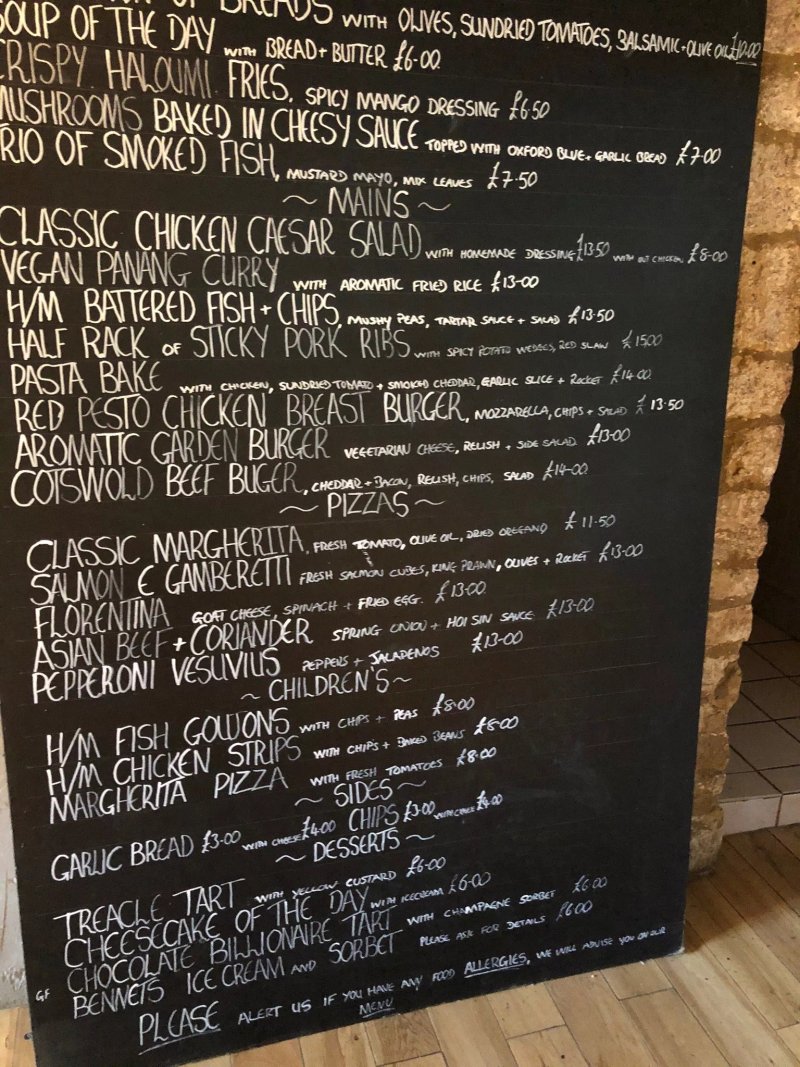 OF BREADS WITH OLIVES, SUNDRIED TOMATOES, BALSAMIC + OLIVE OIL £10.00
SOUP OF THE DAY WITH BREAD + BUTTER £6.00
CRISPY HALOUMI FRIES, SPICY MANGO DRESSING £6.50
MUSHROOMS BAKED IN CHEESY SAUCE TOPPED WITH OXFORD BLUE + GARLIC BREAD £7.00
TRIO OF SMOKED FISH, MUSTARD MAYO, MIX LEAVES £7.50
~ MAINS ~
CLASSIC CHICKEN CAESAR SALAD WITH HOMEMADE DRESSING £13.50 WITH OUT CHICKEN £8.00
VEGAN PANANG CURRY WITH AROMATIC FRIED RICE £13.00
H/M BATTERED FISH + CHIPS, MUSHY PEAS, TARTAR SAUCE + SALAD £13.50
HALF RACK OF STICKY PORK RIBS WITH SPICY POTATO WEDGES, RED SLAW £15.00
PASTA BAKE WITH CHICKEN, SUNDRIED TOMATO + SMOKED CHEDDAR, GARLIC SLICE + ROCKET £14.00
RED PESTO CHICKEN BREAST BURGER, MOZZARELLA, CHIPS + SALAD £13.50
AROMATIC GARDEN BURGER VEGETARIAN CHEESE, RELISH + SIDE SALAD £13.00
COTSWOLD BEEF BUGER, CHEDDAR + BACON, RELISH, CHIPS, SALAD £14.00
~ PIZZAS ~
CLASSIC MARGHERITA, FRESH TOMATO, OLIVE OIL, DRIED OREGANO £11.50
SALMON E GAMBERETTI FRESH SALMON CUBES, KING PRAWN, OLIVES + ROCKET £13.00
FLORENTINA GOAT CHEESE, SPINACH + FRIED EGG. £13.00
ASIAN BEEF + CORIANDER SPRING ONION + HOI SIN SAUCE £13.00
PEPPERONI VESUVIUS PEPPERS + JALAPENOS £13.00
~ CHILDREN'S ~
H/M FISH GOUJONS WITH CHIPS + PEAS £8.00
H/M CHICKEN STRIPS WITH CHIPS + BAKED BEANS £8.00
MARGHERITA PIZZA WITH FRESH TOMATOES £8.00
~ SIDES ~
GARLIC BREAD £3.00 WITH CHEESE £4.00 CHIPS £3.00 WITH CHEESE £4.00
~ DESSERTS ~
TREACLE TART WITH YELLOW CUSTARD £6.00
CHEESECAKE OF THE DAY WITH ICECREAM £6.00
CHOCOLATE BILLIONAIRE TART WITH CHAMPAGNE SORBET £6.00
GF BENNETS ICE CREAM AND SORBET PLEASE ASK FOR DETAILS £6.00
PLEASE ALERT US IF YOU HAVE ANY FOOD ALLERGIES, WE WILL ADVISE YOU ON OUR
MENU